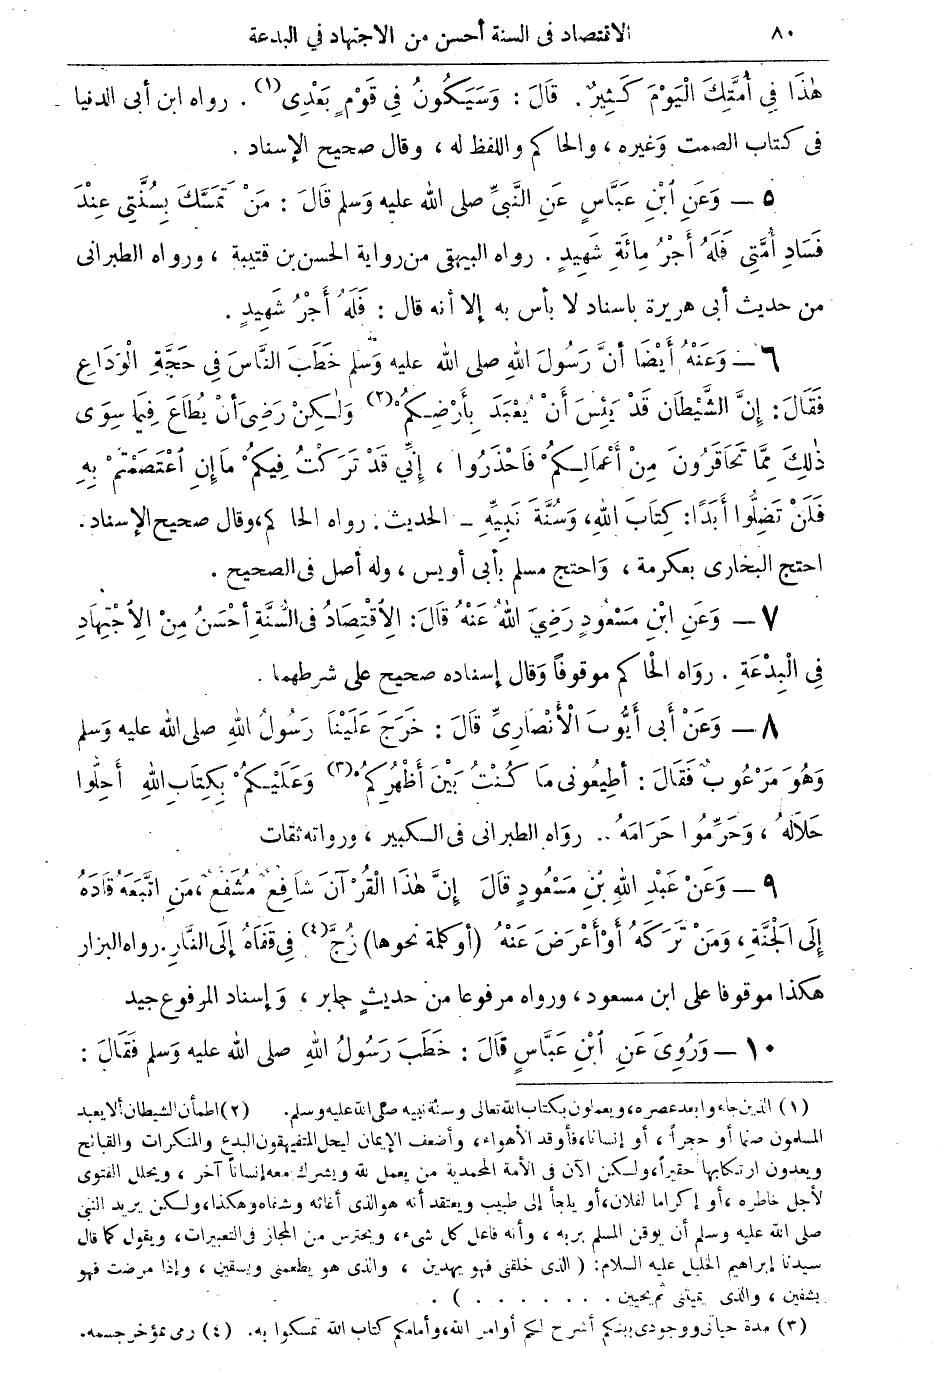 ٨٠ الاقتصاد فى السنة أحسن من الاجتهاد في البدعة
هٰذَا فِي أُمَّتِكَ الْيَوْمَ كَثِيرٌ. قَالَ : وَسَيَكُونُ فِي قَوْمٍ بَعْدِى (١) . رواه ابن أبى الدنيا
فى كتاب الصمت وَغيره ، والحاكم واللفظ له ، وقال صحيح الإسناد .
٥ — وَعَنِ ابْنِ عَبَّاسٍ عَنِ النَّبِيِّ صلى الله عليه وَسلم قَالَ : مَنْ تَمَسَّكَ بِسُنَّتِى عِنْدَ
فَسَادِ أُمَّتِى فَلَهُ أَجْرُ مِائَةِ شَهِيدٍ . رواه البيهقى من رواية الحسن بن قتيبة ، ورواه الطبرانى
من حديث أبى هريرة باسناد لا بأس به إلا أنه قال : فَلَهُ أَجْرُ شَهِيدٍ .
٦ — وَعَنْهُ أَيْضًا أَنَّ رَسُولَ اللهِ صلى الله عليه وَسلم خَطَبَ النَّاسَ فِي حَجَّةِ الْوَدَاعِ
فَقَالَ: إِنَّ الشَّيْطَانَ قَدْ يَئِسَ أَنْ يُعْبَدَ بِأَرْضِكُمْ (٢) وَلٰكِنْ رَضِىَ أَنْ يُطَاعَ فِيمَا سِوَى
ذٰلِكَ مِمَّا تَحَاقَرُونَ مِنْ أَعْمَالِكُمْ فَاحْذَرُوا ، إِنِّي قَدْ تَرَكْتُ فِيكُمْ مَا إِنِ اعْتَصَمْتُمْ بِهِ
فَلَنْ تَضِلُّوا أَبَدًا: كِتَابَ اللهِ، وَسُنَّةَ نَبِيِّهِ — الحديث. رواه الحاكم، وقال صحيح الإسناد.
احتج البخارى بعكرمة ، وَاحتج مسلم بأبى أويس ، وله أصل فى الصحيح .
٧ — وَعَنِ ابْنِ مَسْعُودٍ رَضِيَ اللهُ عَنْهُ قَالَ: الِاقْتِصَادُ فى السُّنَّةِ أَحْسَنُ مِنَ الِاجْتِهَادِ
فِي الْبِدْعَةِ . روَاه الْحاكم موقوفاً وَقال إسناده صحيح على شرطهما .
٨ — وَعَنْ أَبى أَيُّوبَ الْأَنْصَارِىِّ قَالَ : خَرَجَ عَلَيْنَا رَسُولُ اللهِ صلى الله عليه وَسلم
وَهُوَ مَرْعُوبٌ فَقَالَ : أَطِيعُونى مَا كُنْتُ بَيْنَ أَظْهُرِكُمْ (٣) وَعَلَيْكُمْ بِكِتَابِ اللهِ أَحِلُّوا
حَلَالَهُ ، وَحَرِّمُوا حَرَامَهُ .. روَاه الطبرانى فى الكبير ، ورواته ثقات
٩ — وَعَنْ عَبْدِ اللهِ بْنِ مَسْعُودٍ قَالَ إِنَّ هٰذَا الْقُرْآنَ شَافِعٌ مُشَفَّعٌ، مَنِ اتَّبَعَهُ قَادَهُ
إِلَى الْجَنَّةِ ، وَمَنْ تَرَكَهُ أَوْ أَعْرَضَ عَنْهُ (أو كلمة نحوها) زُجَّ (٤) فِي قَفَاهُ إِلَى النَّارِ. رواه البزار
هكذا موقوفا على ابن مسعود ، ورواه مرفوعا من حديثِ جابر ، وَإسناد المرفوع جيد
١٠ — وَرُوِىَ عَنِ ابْنِ عَبَّاسٍ قَالَ : خَطَبَ رَسُولُ اللهِ صلى الله عليه وَسلم فَقَالَ :
(١) الذين جاءوا بعد عصره، ويعملون بكتاب الله تعالى وسنة نبيه صلى الله عليه وسلم. (٢) اطمأن الشيطان ألا يعبد
المسلمون صنما أو حجراً ، أو إنسانا، فأوقد الأهواء، وأضعف الإيمان ليحل المتفيهقون البدع والمنكرات والقبائح
ويعدون ارتكابها حقيراً، ولكن الآن فى الأمة المحمدية من يعمل لله ويشرك معه إنساناً آخر ، ويحلل الفتوى
لأجل خاطره ، أو إكراما لفلان، أو يلجأ إلى طبيب ويعتقد أنه هو الذى أغاثه وشفاه وهكذا، ولكن يريد النبى
صلى الله عليه وسلم أن يوقن المسلم بربه ، وأنه فاعل كل شىء، ويحترس من المجاز فى التعبيرات، ويقول كما قال
سيدنا إبراهيم الخليل عليه السلام: ( الذى خلقنى فهو يهدين ، والذى هو يطعمنى ويسقين ، وإذا مرضت فهو
يشفين ، والذى يميتنى ثم يحيين . . . . . . . ) .
(٣) مدة حياتى ووجودى بينكم أشرح لكم أوامر الله، وأمامكم كتاب الله تمسكوا به. (٤) رمى بمؤخر جسمه.